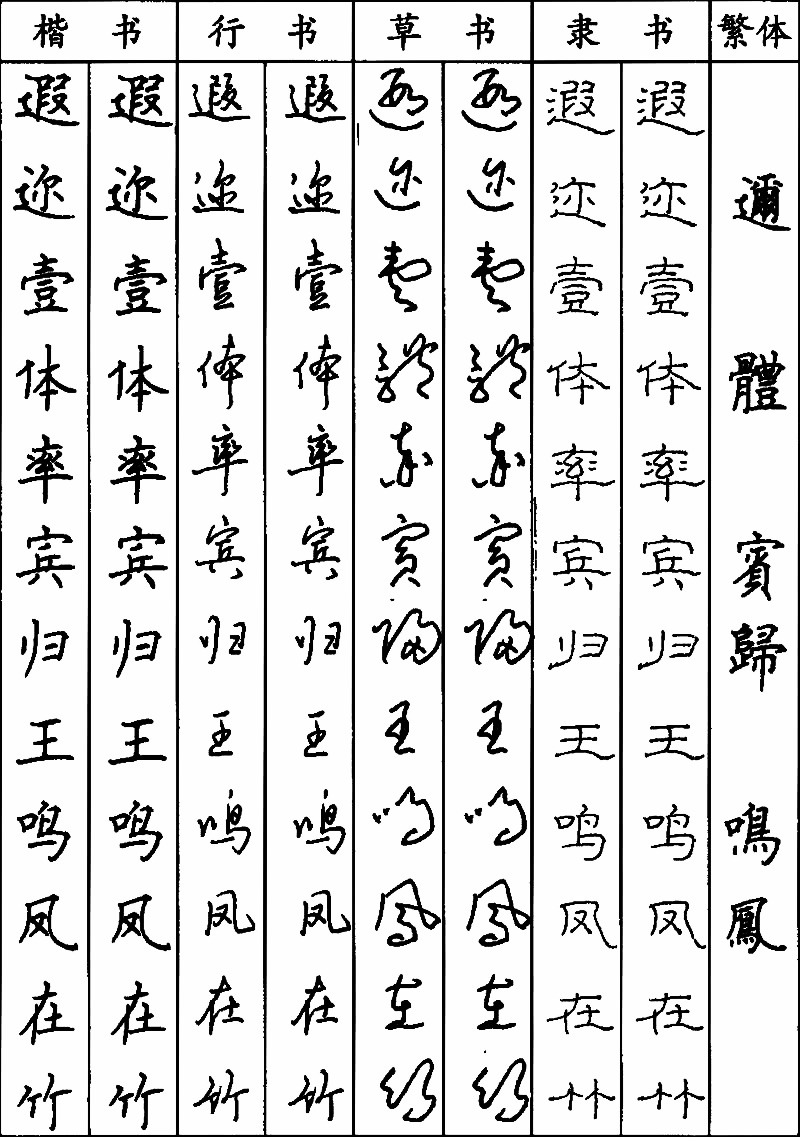 楷书 行书 草书 隶书 繁体
遐 遐 遐 遐 遐 遐 遐 遐
迩 迩 迩 迩 迩 迩 迩 迩 邇
壹 壹 壹 壹 壹 壹 壹 壹
体 体 体 体 体 体 体 体 體
率 率 率 率 率 率 率 率
宾 宾 宾 宾 宾 宾 宾 宾 賓
归 归 归 归 归 归 归 归 歸
王 王 王 王 王 王 王 王
鸣 鸣 鸣 鸣 鸣 鸣 鸣 鸣 鳴
凤 凤 凤 凤 凤 凤 凤 凤 鳳
在 在 在 在 在 在 在 在
竹 竹 竹 竹 竹 竹 竹 竹